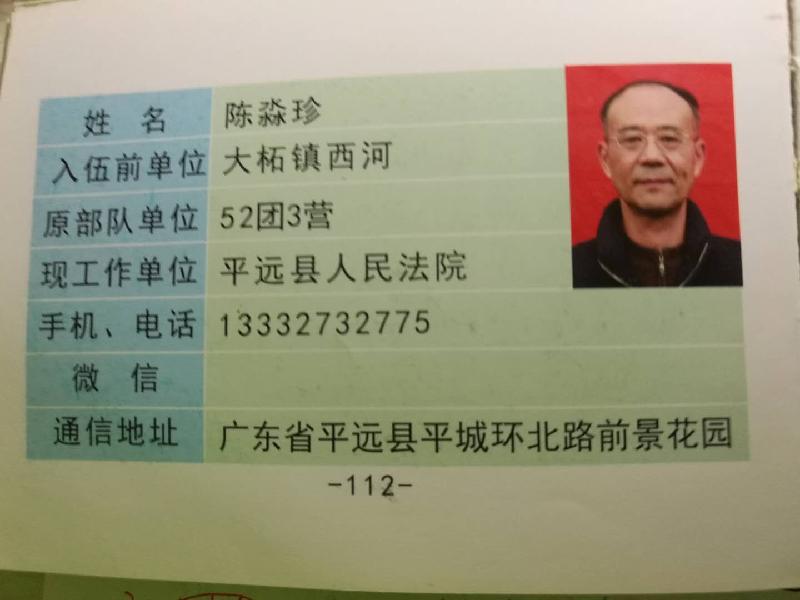 姓 名 陈淼珍
入伍前单位 大柘镇西河
原部队单位 52团3营
现工作单位 平远县人民法院
手机、电话 13332732775
微 信
通信地址 广东省平远县平城环北路前景花园
-112-